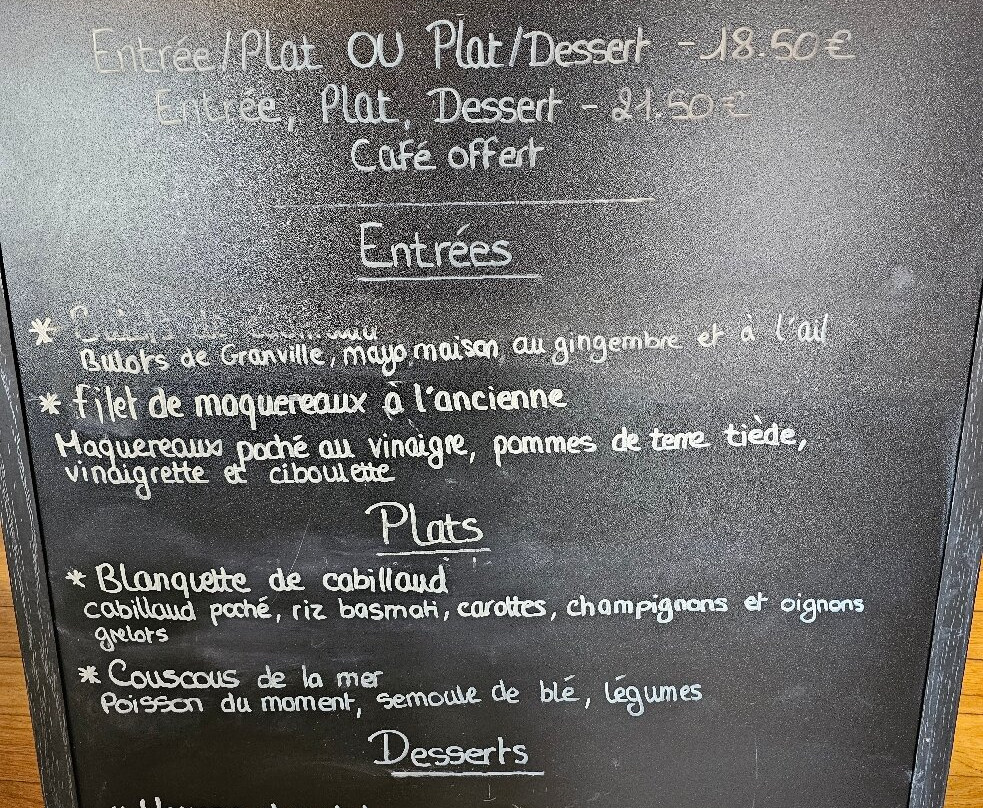 Entrée/Plat OU Plat/Dessert - 18.50€
Entrée, Plat, Dessert - 21.50€
Café offert
Entrées
*
Bulots de Granville, mayo maison au gingembre et à l'ail
* filet de maquereaux à l'ancienne
Maquereaux poché au vinaigre, pommes de terre tiède,
vinaigrette et ciboulette
Plats
* Blanquette de cabillaud
cabillaud poché, riz basmati, carottes, champignons et oignons
grelots
* Couscous de la mer
Poisson du moment, semoule de blé, légumes
Desserts